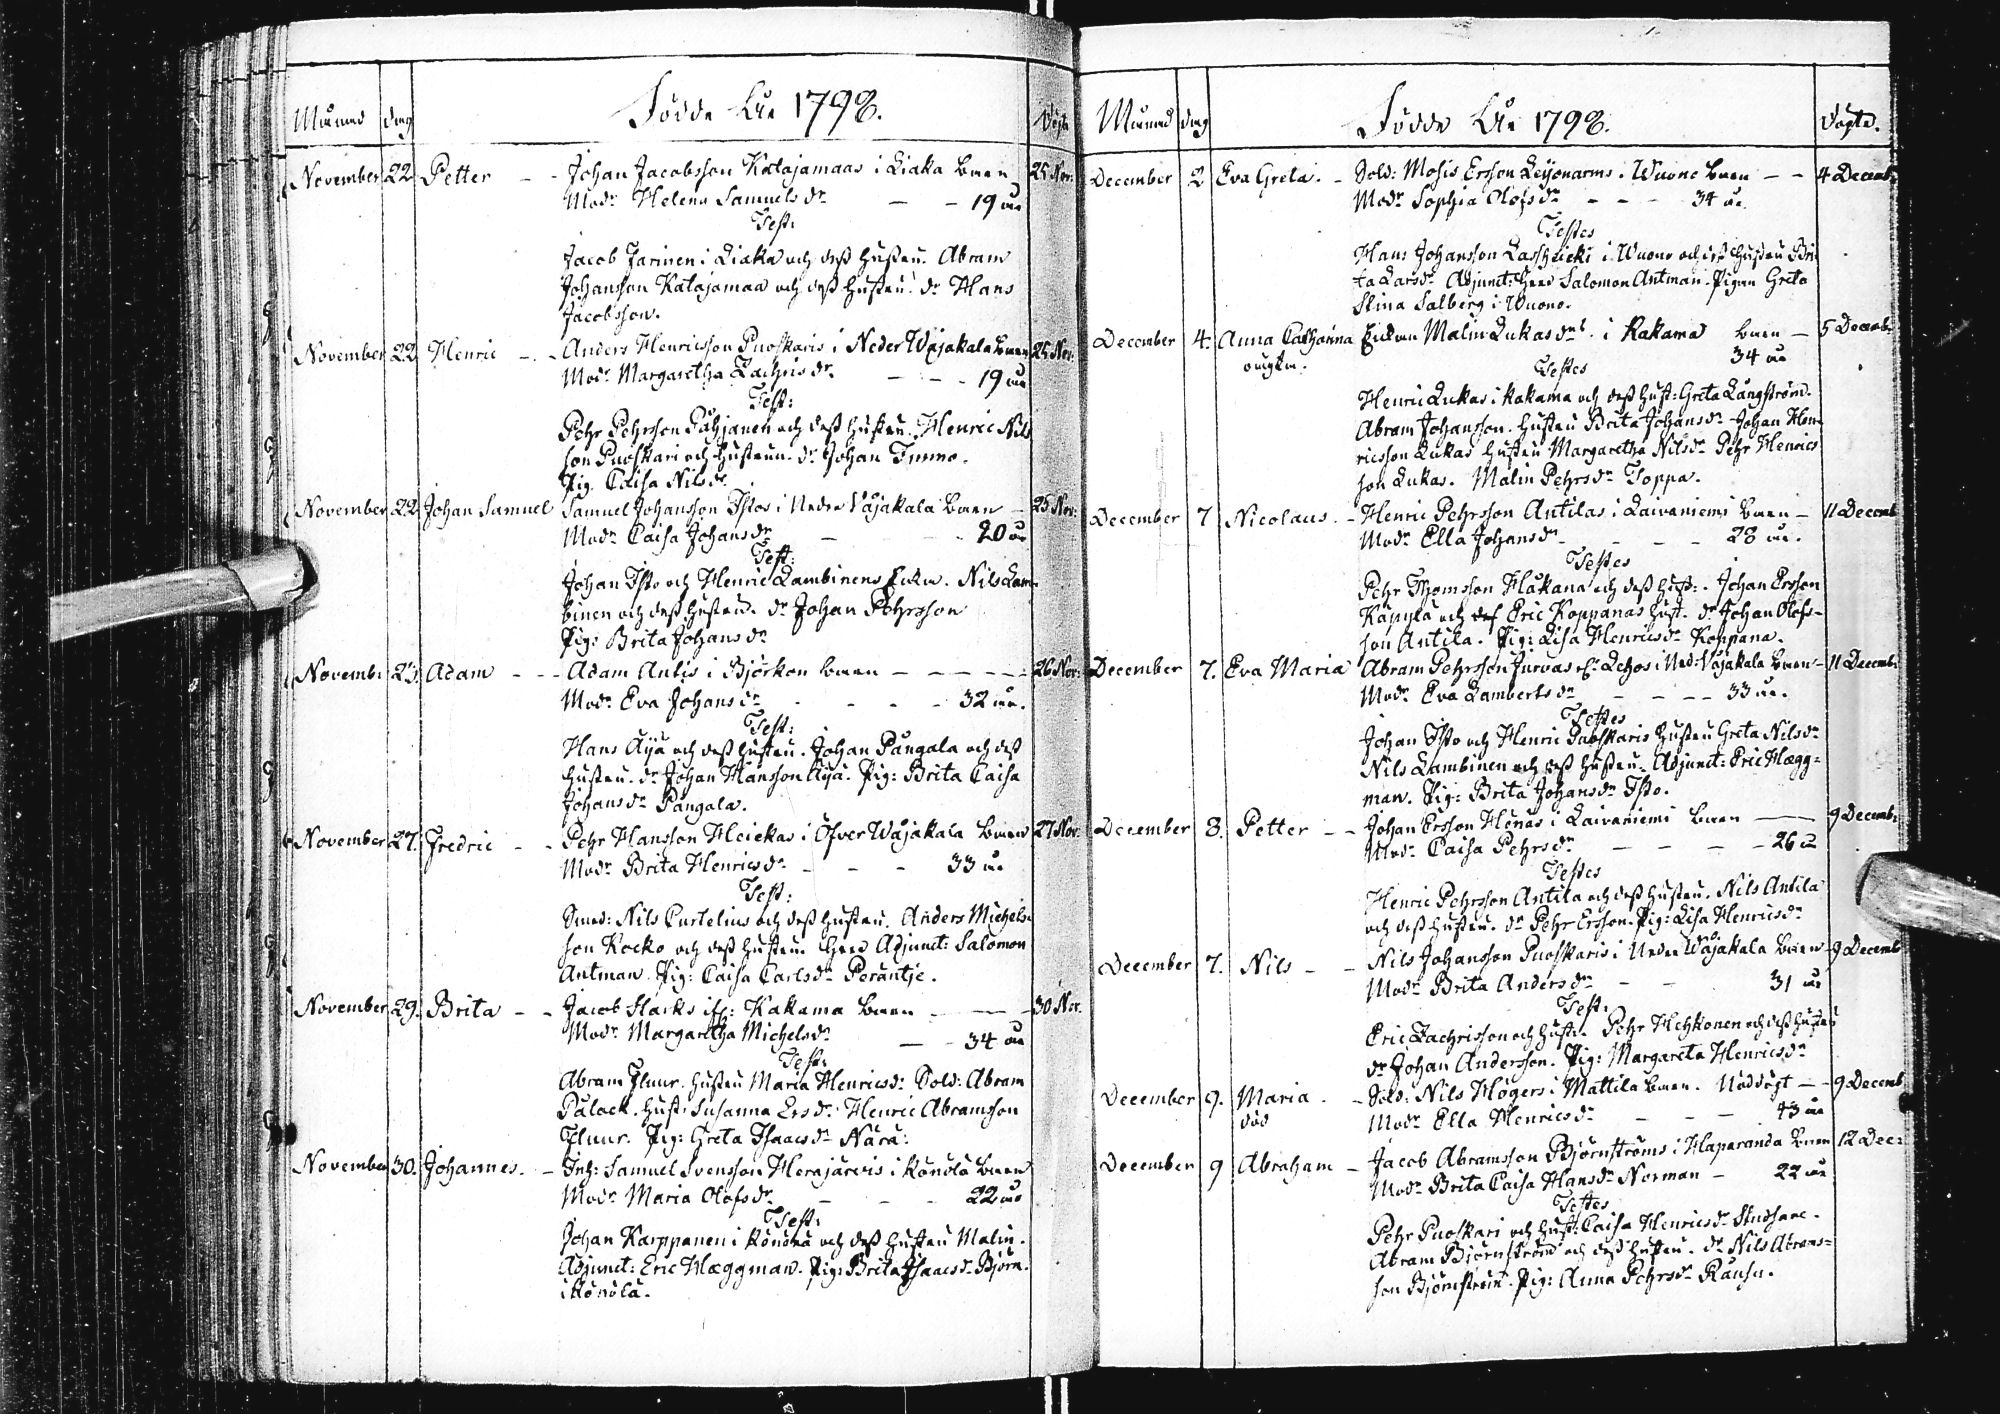 Månad dag Födde År 1798. Döpte
November 22 Petter - - Johan Jacobsson Katajamaas i Liaka barn 25 Nov:
Modr Helena Samuelsdr - - 19 år
Test:
Jacob Jarinen i Liaka och dess hustru. Abram
Johansson Katajamaa och dess hustru. dr Hans
Jacobsson.
November 22 Henric - - Anders Henricsson Puoskaris i Neder Wojakala barn 25 Nov:
Modr Margaretha Zachrisdr - - - 19 år
Test:
Pehr Pehrsson Påhjanen och dess hustru. Henric Nils
son Puoskari och hustrun. dr Johan Immo.
Pig. Caisa Nilsdr
November 22 Johan Samuel Samuel Johansson Istos i Neder Wojakala barn - 25 Nov:
Modr Caisa Johansdr - - 20 år
Test:
Johan Isto och Henric Lambinens Enka. Nils Lam-
binen och dess hustru. dr Johan Pehrsson
Pig: Brita Johansdr
Novemb: 25 Adam - - - Adam Antis i Björkön barn - - - - 26 Nov:
Modr Eva Johansdr - - - - 32 år.
Test:
Hans Äijä och dess hustru. Johan Pångala och dess
hustru. dr Johan Hansson Äijä. Pig: Brita Caisa
Johansdr Pångala.
November 27. Fredric - - Pehr Hansson Heickas i Öfver Wojakala barn 27 Nov:
Modr Brita Henricsdr - - - 33 år
Test:
Smed: Nils Curtelius och dess hustru. Anders Michels-
son Kocko och dess hustru. Herr Adjunct: Salomon
Antman. Pig: Caisa Carlsdr Peräntie.
November 29. Brita - - Jacob Harks i Kakama barn - - 30 Nov.
Modr Margaretha Michelsdr - - 34 år
Test:
Abram Fluur. hustru Maria Henricsdr Sold: Abram
Palack. hust: Susanna Ersdr Henric Abramsson
Fluur. Pig: Greta Isaacsdr Närä.
November 30. Johannes. - Inh: Samuel Svensson Herajärvis i Könölä barn
Modr Maria Olofsdr - - - 22 år
Test:
Johan Karppanen i Könölä och dess hustru Malin.
Adjunct: Eric Hæggman. Pig: Brita Isaacsdr Björn.
i Könölä.
Månad dag Födde År 1798. Döpte.
December 2 Eva Greta. - Sold: Mosis Ersson Leijonarms i Wuono barn - - 4 Decemb:
Modr Sophia Olofsdr - - - 34 år.
Testes
Hans Johansson i Wuono och dess hustru Bri-
ta Larsdr Adjunct: Herr Salomon Antman. Pigan Greta
Stina Salberg i Wuono.
December 4. Anna Catharina Enkan Malin Lukasdr i Kakama barn - 5 Decemb:
oägta. 34 år
Testes
Henric Lukas i Kakama och dess hust: Greta Långström.
Abram Johansson. hustru Brita Johansdr Johan Hen-
ricsson Lukas hustru Margaretha Nilsdr Pehr Henrics
son Lukas. Malin Pehrsdr Toppa.
December 7 Nicolaus. - Henric Pehrsson Antilas i Laivaniemi barn - 11 Decemb
Modr Ella Johansdr - - - - 28 år.
Testes
Pehr Thomsson Håkana och dess hust: Johan Ersson
Käpylä och Eric Koppanas hust. dr Johan Olofs-
son Antila. Pig: Lisa Henricsdr Koppana.
December 7. Eva Maria Abram Pehrsson Jurvas i Ned: Wojakala barn - 11 Decemb:
Modr Eva Lambertsdr - - - 33 år.
Testes
Johan Isto och Henric Puoskaris hustru Greta Nilsdr
Nils Lambinen och dess hustru. Adjunct: Eric Hægg-
man. Pig: Brita Johansdr Isto.
December 8. Petter - - Johan Ersson Henas i Laivaniemi barn - 9 Decemb:
Modr Caisa Pehrsdr - - - - 26 år
Testes
Henric Pehrsson Antila och dess hustru. Nils Antila
och dess hustru. dr Pehr Ersson. Pig: Lisa Henricsdr
December 7. Nils - - Nils Johansson Puoskaris i Neder Wojakala barn - 9 Decemb
Modr Brita Andersdr - - 31 år
Test:
Eric Zachrisson och hustr. Pehr Hehkonen och dess hustru
dr Johan Andersson. Pig: Margareta Henricsdr
December 9. Maria - Sold: Nils Högers i Mattila barn. Nöddöpt - - 9 Decemb
död Modr Ella Henricsdr - - - 43 år
December 9 Abraham - Jacob Abramsson Björnströms i Haparanda barn 12 Dec:
Modr Brita Caisa Hansdr Norman - 22 år
Testes
Pehr Puoskari och hust: Caisa Henricsdr
Abram Björnström och dess hustru. dr Nils Abrams-
son Björnström. Pig: Anna Pehrsdr